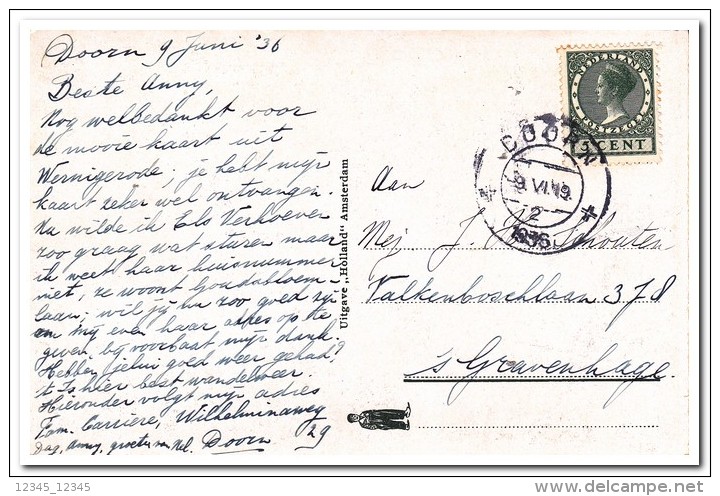 Doorn 9 Juni '36
Beste Anny,
Nog welbedankt voor
de mooie kaart uit
Wernigerode; je hebt mijn
kaart zeker wel ontvangen.
Nu wilde ik Els Verhoeven
zoo graag wat sturen maar
ik weet haar huisnummer
niet, ze woont Goudsbloem-
laan; wil jij nu zoo goed zijn
en mij even haar adres op te
geven. bij voorbaat mijn dank.
Hebben jelui goed weer gehad?
't Is hier best wandelweer.
Hieronder volgt mijn adres
Fam. Carrière, Wilhelminaweg
Doorn 29
Dag, Anny, groeten van Nel.
Uitgave „Holland" Amsterdam
NEDERLAND
POSTZEGEL
5 CENT
DOORN
9.VI.19
2
1936
Aan
Mej. J. Schouten
Valkenboschlaan 378
's Gravenhage.
12345_12345
www.delcampe.net